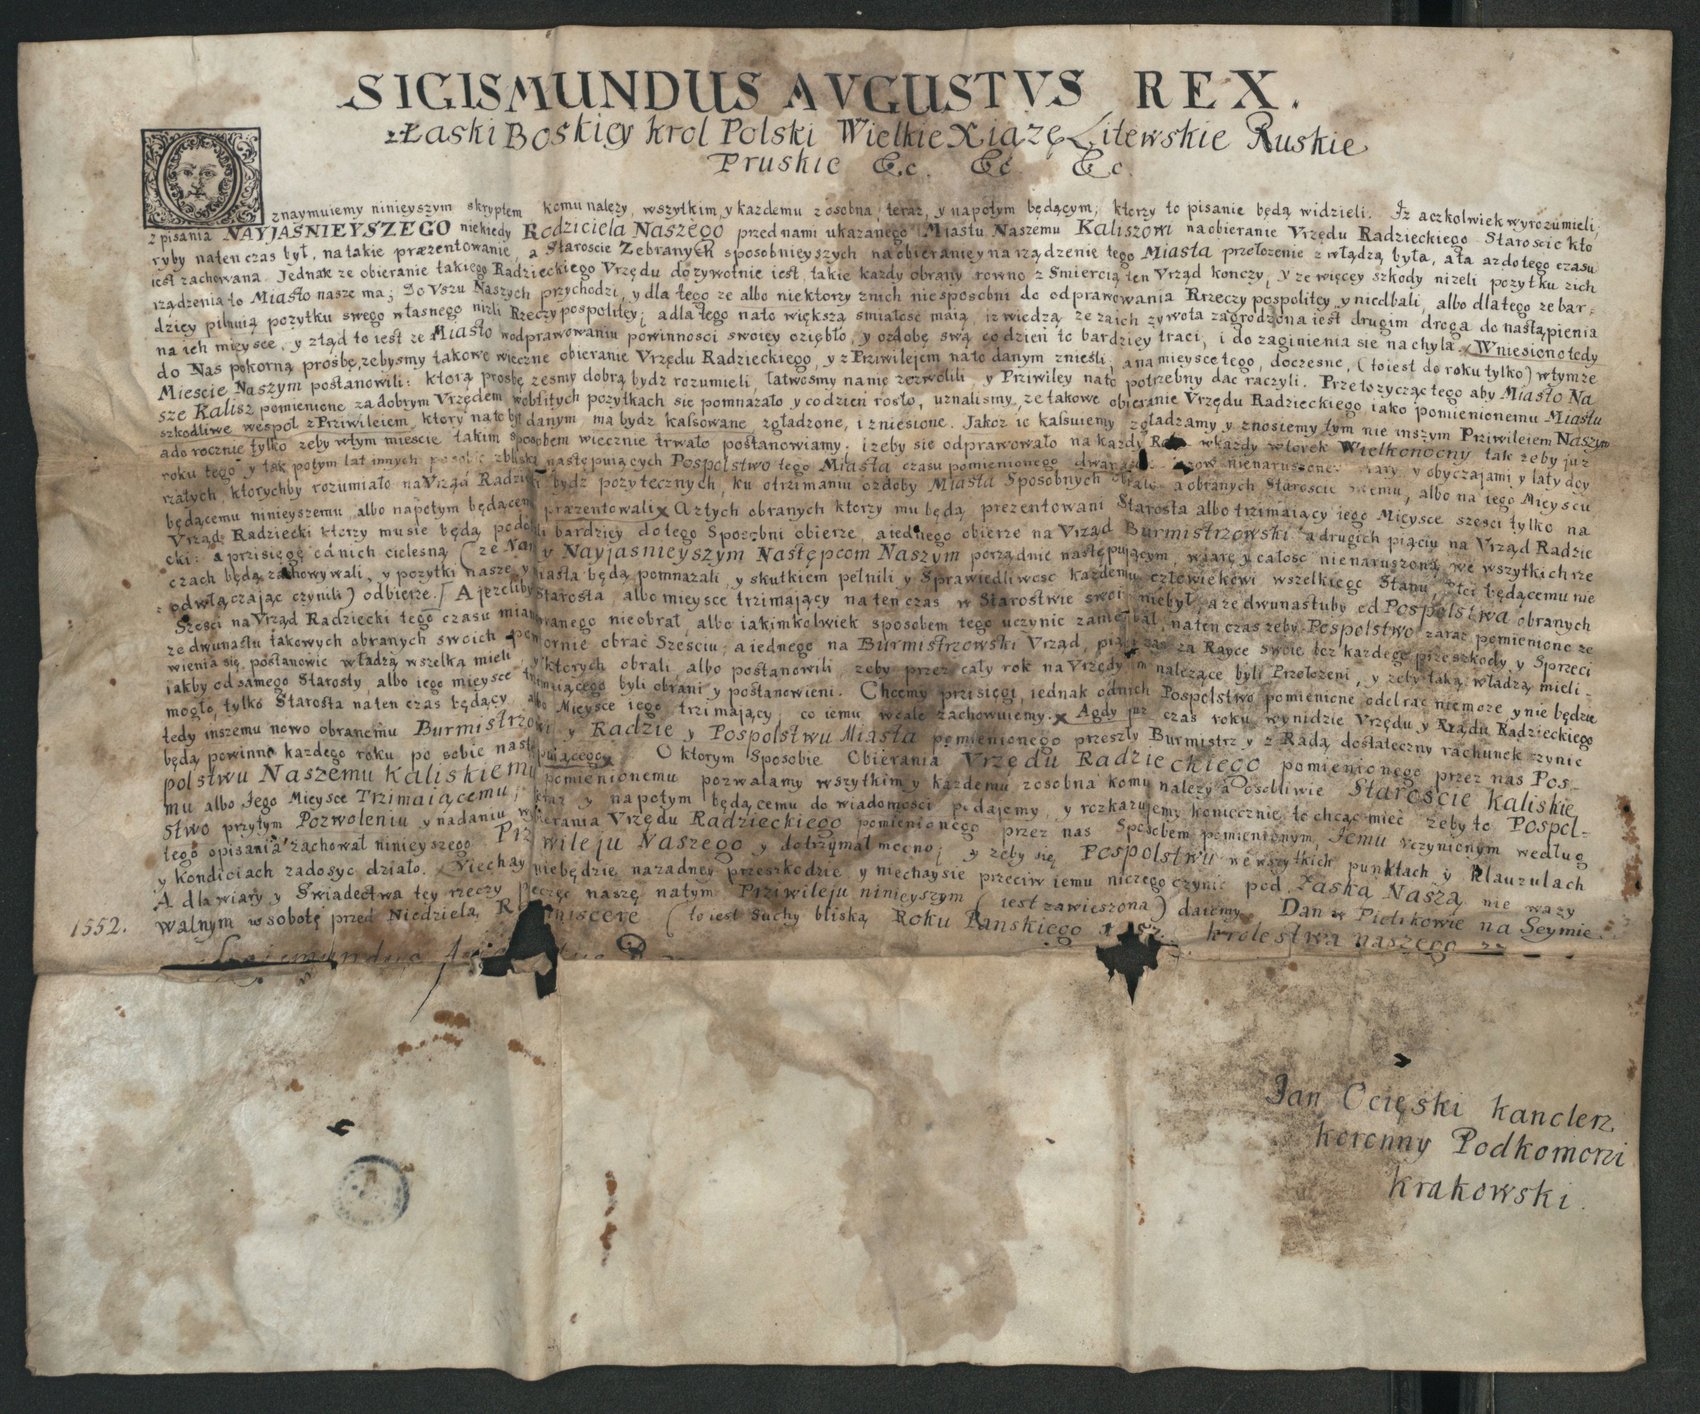 SIGISMUNDUS AVGUSTVS REX.
z Łaski Boskiey krol Polski Wielkie Xiązę Litewskie Ruskie
Pruskie &c. &c &c.
O
znaymuiemy ninieyszym skryptem komu nalezy, wszytkim y kazdemu z osobna, teraz, y napotym będącym, ktorzy to pisanie będą widzieli. Iz aczkolwiek wyrozumieli,
z pisania NAYJASNIEYSZEGO niekiedy Rodziciela Naszego przed nami ukazanego Miastu Naszemu Kaliszowi na obieranie Vrzędu Radzieckiego Staroscie kto
ryby naten czas był, natakie prazentowanie, a Staroscie Zebranych sposobnieyszych na obieranie y na rządzenie tego Miasta przełozenie z władzą była, a ta az do tego czasu
iest zachowana. Jednak ze obieranie takiego Radzieckiego Vrzędu dozywotnie iest, takie kazdy obrany rowno z Smiercią ten Vrząd konczy, y ze więcey szkody nizeli pozytku zich
rządzenia to Miasto nasze ma; Do Vszu Naszych przychodzi, y dla tego ze albo niektorzy znich niesposobni do odprawowania Rzeczy pospolitey y niedbali, albo dlatego ze bar-
dziey pilnuią pozytku swego własnego nizli Rzeczy pospolitey; a dla tego nato większą smiałosc maią, iz wiedzą ze zaich zywota zagrodzona iest drugim droga do nastąpienia
na ich mieysce, y ztąd to iest ze Miasto wodprawowaniu powinnosci swoiey oziębło, y ozdobę swą co dzien to bardziey traci, i do zaginienia sie nachyla. Wniesiono tedy
do Nas pokorną prosbę, zebysmy takowe wieczne obieranie Vrzędu Radzieckiego, y z Priwilejem nato danym zniesli, a na mieysce tego, doczesne, (to iest do roku tylko) wtymze
Miescie Naszym postanowili: ktorą prosbę zesmy dobrą bydz rozumieli, łatwosmy na nię zezwolili, y Priwiley nato potrzebny dac raczyli. Przetozycząc tego aby Miasto Na
sze Kalisz pomienione za dobrym Vrzędem wobfitych pozytkach sie pomnazało y codzien rosło, uznalismy, ze takowe obieranie Vrzędu Radzieckiego iako pomienionemu Miastu
szkodliwe wespoł z Priwileiem, ktory nato był danym ma bydz kassowane, zgładzone, i zniesione. Jakoz ie kassuiemy zgładzamy y znosiemy tym nie inszym Priwileiem Naszym
a do rocznie tylko zeby wtym miescie takim sposobem wiecznie trwało postanowiamy; izeby sie odprawowało na kazdy Rok wkazdy wtorek Wielkonocny tak zeby juz
roku tego y tak potym lat innych następuiących Pospolstwo tego Miasta czasu pomienionego nienaruszoney wiary y obyczajami y laty doy
rzałych ktorychby rozumiało na Vrząd Radziecki bydz pozytecznych, ku otrzimaniu ozdoby Miasta Sposobnych a obranych Staroscie albo na iego Mieyscu
będącemu ninieyszemu, albo napotym będącemu prazentowali. Aztych obranych ktorzy mu będą prezentowani Starosta albo trzimaiący iego Mieysce szesci tylko na
Vrząd Radziecki ktorzy musie będą bardziey do tego Sposobni obierze, a iednego obierze na Vrząd Burmistrzowski a drugich piąciu na Vrząd Radzie
cki: a przisięgę od nich cielesną (ze Nam y Nayjasnieyszym Następcom Naszym porządnie następującym, wiarę y całosc nienaruszoną we wszytkich rze
czach będą zachowywali, y pozytki nasze, y Miasta będą pomnazali, y skutkiem pełnili y Sprawiedliwosc kazdemu człowiekowi wszelkiego Stanu, płci będącemu nie
odwłaczaiąc czynili) odbierze. A jezeliby Starosta albo mieysce trzimający na ten czas w Starostwie niebył, a ze dwunastuby od Pospolstwa obranych
Szesci na Vrząd Radziecki tego czasu mianowanego nieobrał, albo iakimkolwiek sposobem tego uczynic zaniedbał, naten czas zeby Pospolstwo zaraz pomienione ze
ze dwunastu takowych obranych swoich obrac Szesciu; a iednego na Burmistrzowski Vrząd, za Rayce swoie bez kazdego przeszkody y Sprzeci
wienia się, postanowic władzą wszelką mieli y ktorych obrali albo postanowili zeby przez cały rok na Vrzędy nalezące byli Przełozeni, y zeby taką władzą mieli-
iakby od samego Starosty, albo iego mieysce trzimiaiącego byli obrani y postanowieni. Chcemy przisięgi, iednak od nich Pospolstwo pomienione odebrac niemoze y nie będzie
mogło, tylko Starosta naten czas będący albo Mieysce iego trzimaiący, co iemu wcale zachowuiemy. Agdy juz czas roku wynidzie Vrzędu y Rządu Radzieckiego
tedy inszemu nowo obranemu Burmistrzowi y Radzie y Pospolstwu Miasta pomienionego przeszły Burmistrz y z Radą dostateczny rachunek czynic
będą powinni kazdego roku po sobie następuiącego. O ktorym Sposobie Obierania Vrzędu Radzieckiego pomienionego przez nas Pos-
polstwu Naszemu Kaliskiemu pomienionemu pozwalamy wszytkim y kazdemu zosobna komu nalezy a osobliwie Staroscie Kaliskie
mu albo Jego Mieysce Trzimaiącemu; teraz y napotym będącemu do wiadomosci podajemy, y rozkazujemy koniecznie, to chcąc miec zeby to Pospol-
stwo przytym Pozwoleniu y nadaniu wobierania Vrzędu Radzieckiego pomienionego przez nas Sposobem pomienionym, Jemu uczynionym według
tego opisania zachował ninieyszego Przwileju Naszego y dotrzymał mocno; y zeby się Pospolstwu we wszytkich punktach y klauzulach
y kondiciach zadosyc działo. Niechay niebędzie na zadney przeszkodzie y niechaysie przeciw iemu niczego czynic pod Łaską Naszą nie wazy
A dla wiary y Swiadectwa tey rzeczy Pieczęc naszę natym Priwileju ninieyszym (iest zawieszona) daiemy, Dan w Piotrkowie na Seymie
1552. walnym w sobotę przed Niedzielą Reminiscere (to iest Suchy bliską Roku Panskiego krolestwa naszego
Jan Ocięski kanclerz
koronny Podkomorzi
krakowski.